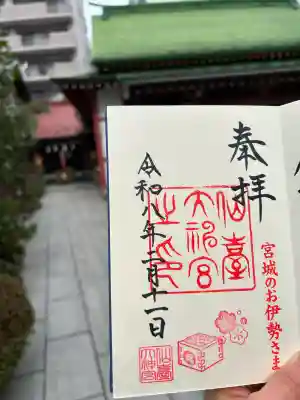 奉拝
仙臺
大神宮
之印
宮城のお伊勢さま
令和八年二月十一日
仙臺
大神宮